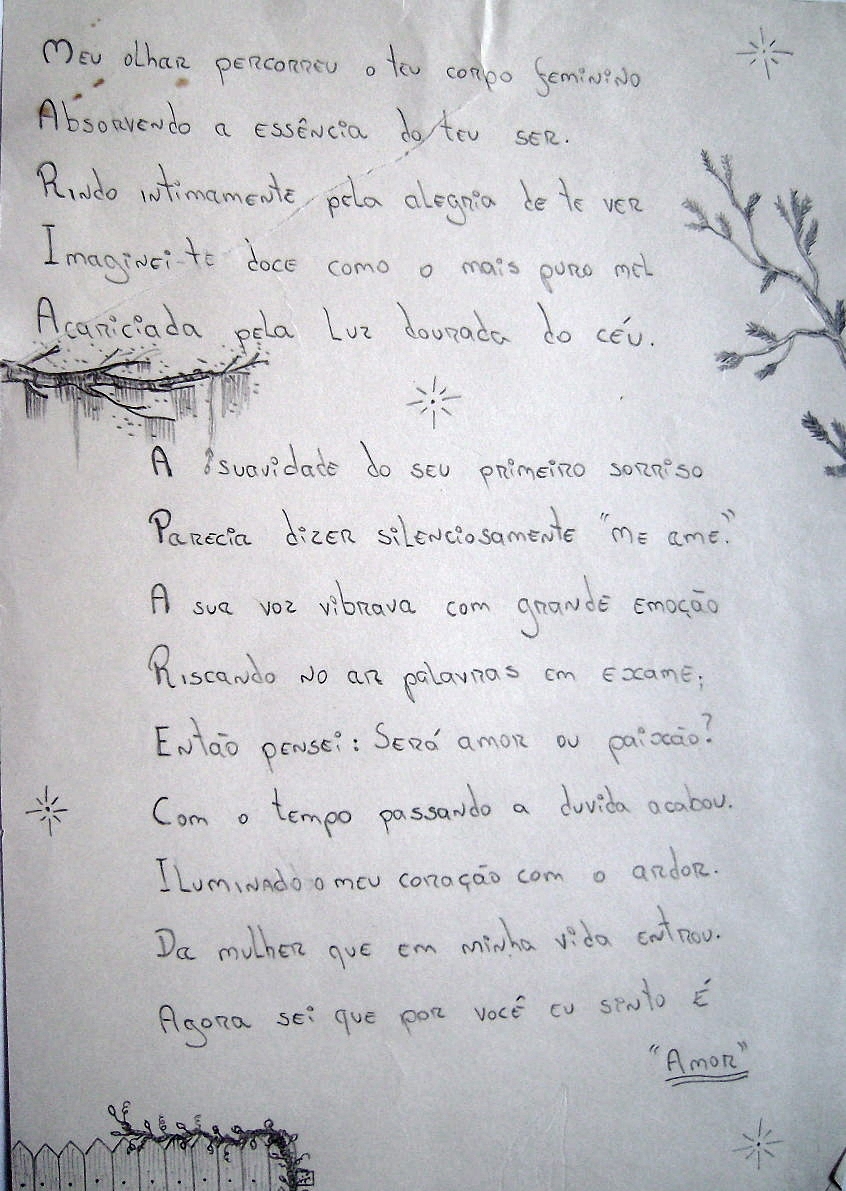 Meu olhar percorreu o teu corpo feminino
Absorvendo a essência do teu ser.
Rindo intimamente pela alegria de te ver
Imaginei-te doce como o mais puro mel
Acariciada pela luz dourada do céu.
A suavidade do seu primeiro sorriso
Parecia dizer silenciosamente "me ame."
A sua voz vibrava com grande emoção
Riscando no ar palavras em exame;
Então pensei: Será amor ou paixão?
Com o tempo passando a duvida acabou.
Iluminado o meu coração com o ardor.
Da mulher que em minha vida entrou.
Agora sei que por você eu sinto é
"Amor"